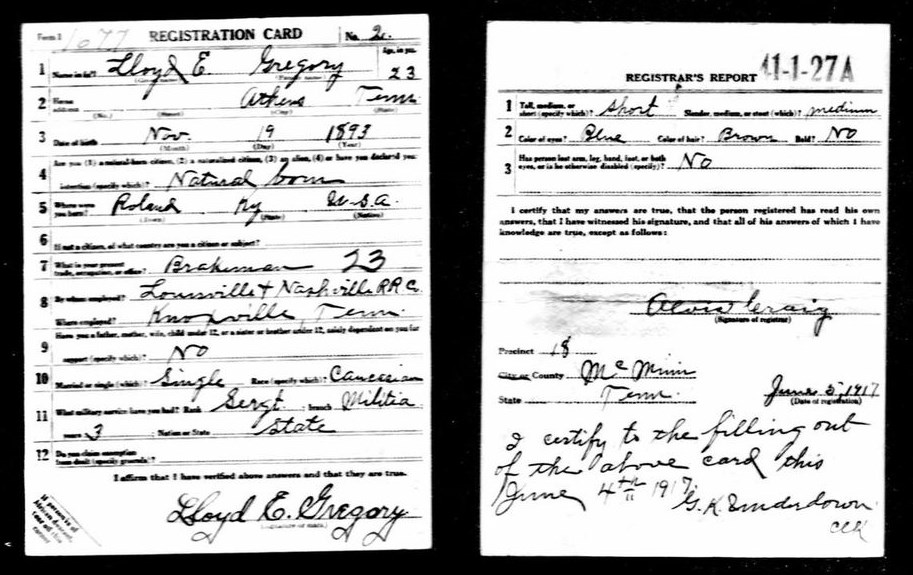 Form 1 1677 REGISTRATION CARD No. 2.
1 Name in full Lloyd E. Gregory Age, in yrs. 23
(Given name) (Family name)
2 Home address Athens Tenn.
(No.) (Street) (City) (State)
3 Date of birth Nov. 19 1893
(Month) (Day) (Year)
4 Are you (1) a natural-born citizen, (2) a naturalized citizen, (3) an alien, (4) or have you declared your
intention (specify which)? Natural born
5 Where were you born? Roland Ky U.S.A.
(Town) (State) (Nation)
6 If not a citizen, of what country are you a citizen or subject?
7 What is your present trade, occupation, or office? Brakeman 23
8 By whom employed? Louisville & Nashville RR Co.
Where employed? Knoxville, Tenn.
9 Have you a father, mother, wife, child under 12, or a sister or brother under 12, solely dependent on you for
support (specify which)? No
10 Married or single (which)? Single Race (specify which)? Caucasian
11 What military service have you had? Rank Sergt. ; branch Militia
years 3 ; Nation or State State
12 Do you claim exemption from draft (specify grounds)?
I affirm that I have verified above answers and that they are true.
Lloyd E. Gregory
(Signature or mark)
If person is of
African descent,
tear off this
corner
REGISTRAR'S REPORT 41-1-27A
1 Tall, medium, or short (specify which)? Short Slender, medium, or stout (which)? medium
2 Color of eyes? Blue Color of hair? Brown Bald? No
3 Has person lost arm, leg, hand, foot, or both eyes, or is he otherwise disabled (specify)? No
I certify that my answers are true, that the person registered has read his own
answers, that I have witnessed his signature, and that all of his answers of which I have
knowledge are true, except as follows:
Craig
(Signature of registrar)
Precinct 18
City or County McMinn
State Tenn. June 5, 1917
(Date of registration)
I certify to the filling out
of the above card this
June 4th 1917.
G. K. Underdown
Clk